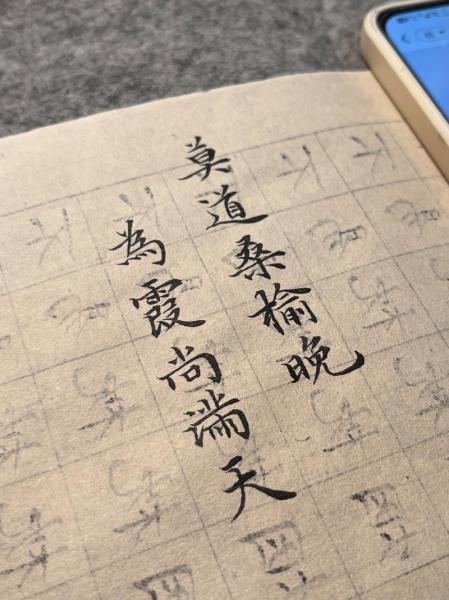 莫道桑榆晚
為霞尚满天